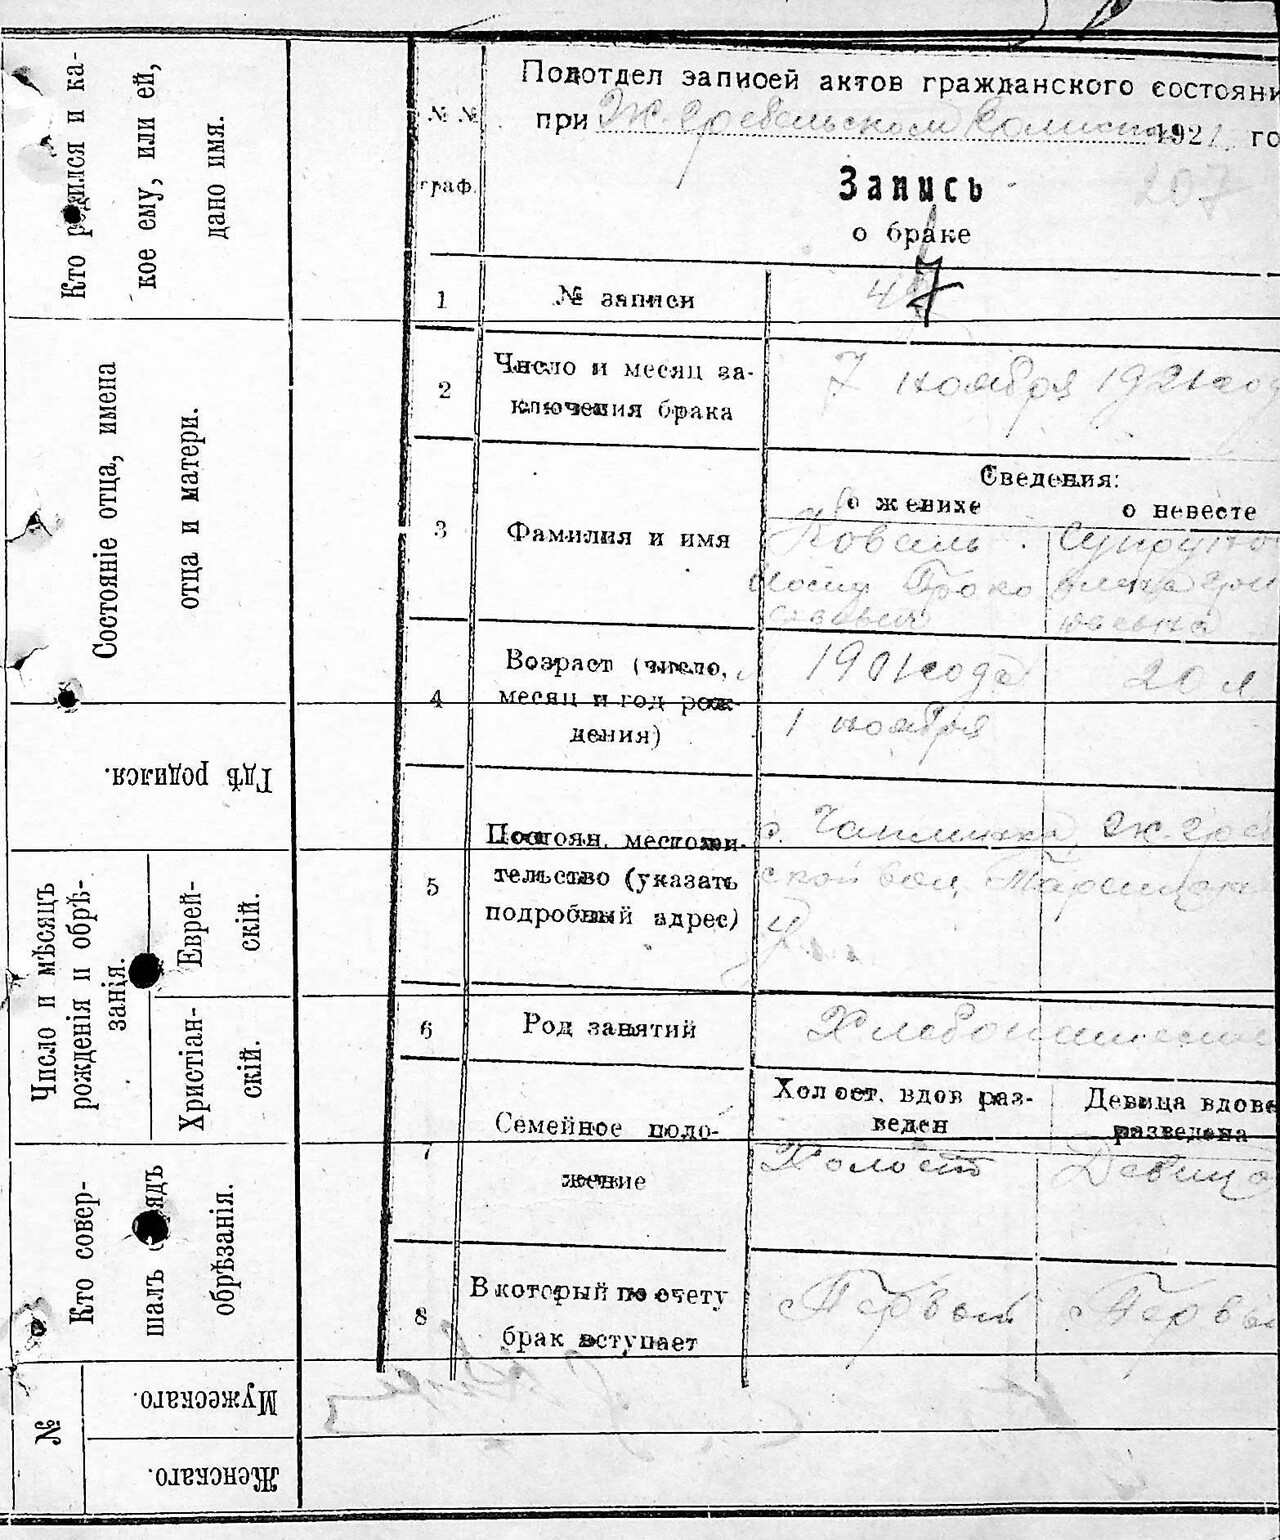 Кто родился и ка-
кое ему, или ей,
дано имя.
Состоянiе отца, имена
отца и матери.
Гдѣ родился.
Число и мѣсяцъ
рожденiя и обрѣ-
занiя.
Еврей-
скiй.
Христiан-
скiй.
Кто совер-
шалъ обрядъ
обрѣзанiя.
№
Мужескаго.
Женскаго.
Подотдел записей актов гражданского состояни
при 192 го
207
Запись
о браке
№ №
граф.
1 № записи 7
2 Число и месяц за-
ключения брака
7 ноября 1921 год
Сведения:
о женихе о невесте
3 Фамилия и имя
Коваль
4 Возраст (число,
месяц и год рож-
дения)
1901 года
1 ноября
20 л
5 Постоян. местожи-
тельство (указать
подробный адрес)
ской вол.
6 Род занятий
7 Семейное поло-
жение
Холост. вдов раз-
веден
Девица вдове
разведена
Холост Девица
8 В который по счету
брак вступает
Первый Первы